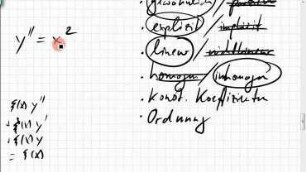 y'' = x²
f(x) y''
+ f(x) y'
+ f(x) y
= f(x)
explizit / implizit
linear / nichtlinear
homogen / inhomogen
konst. Koeffizienten
Ordnung